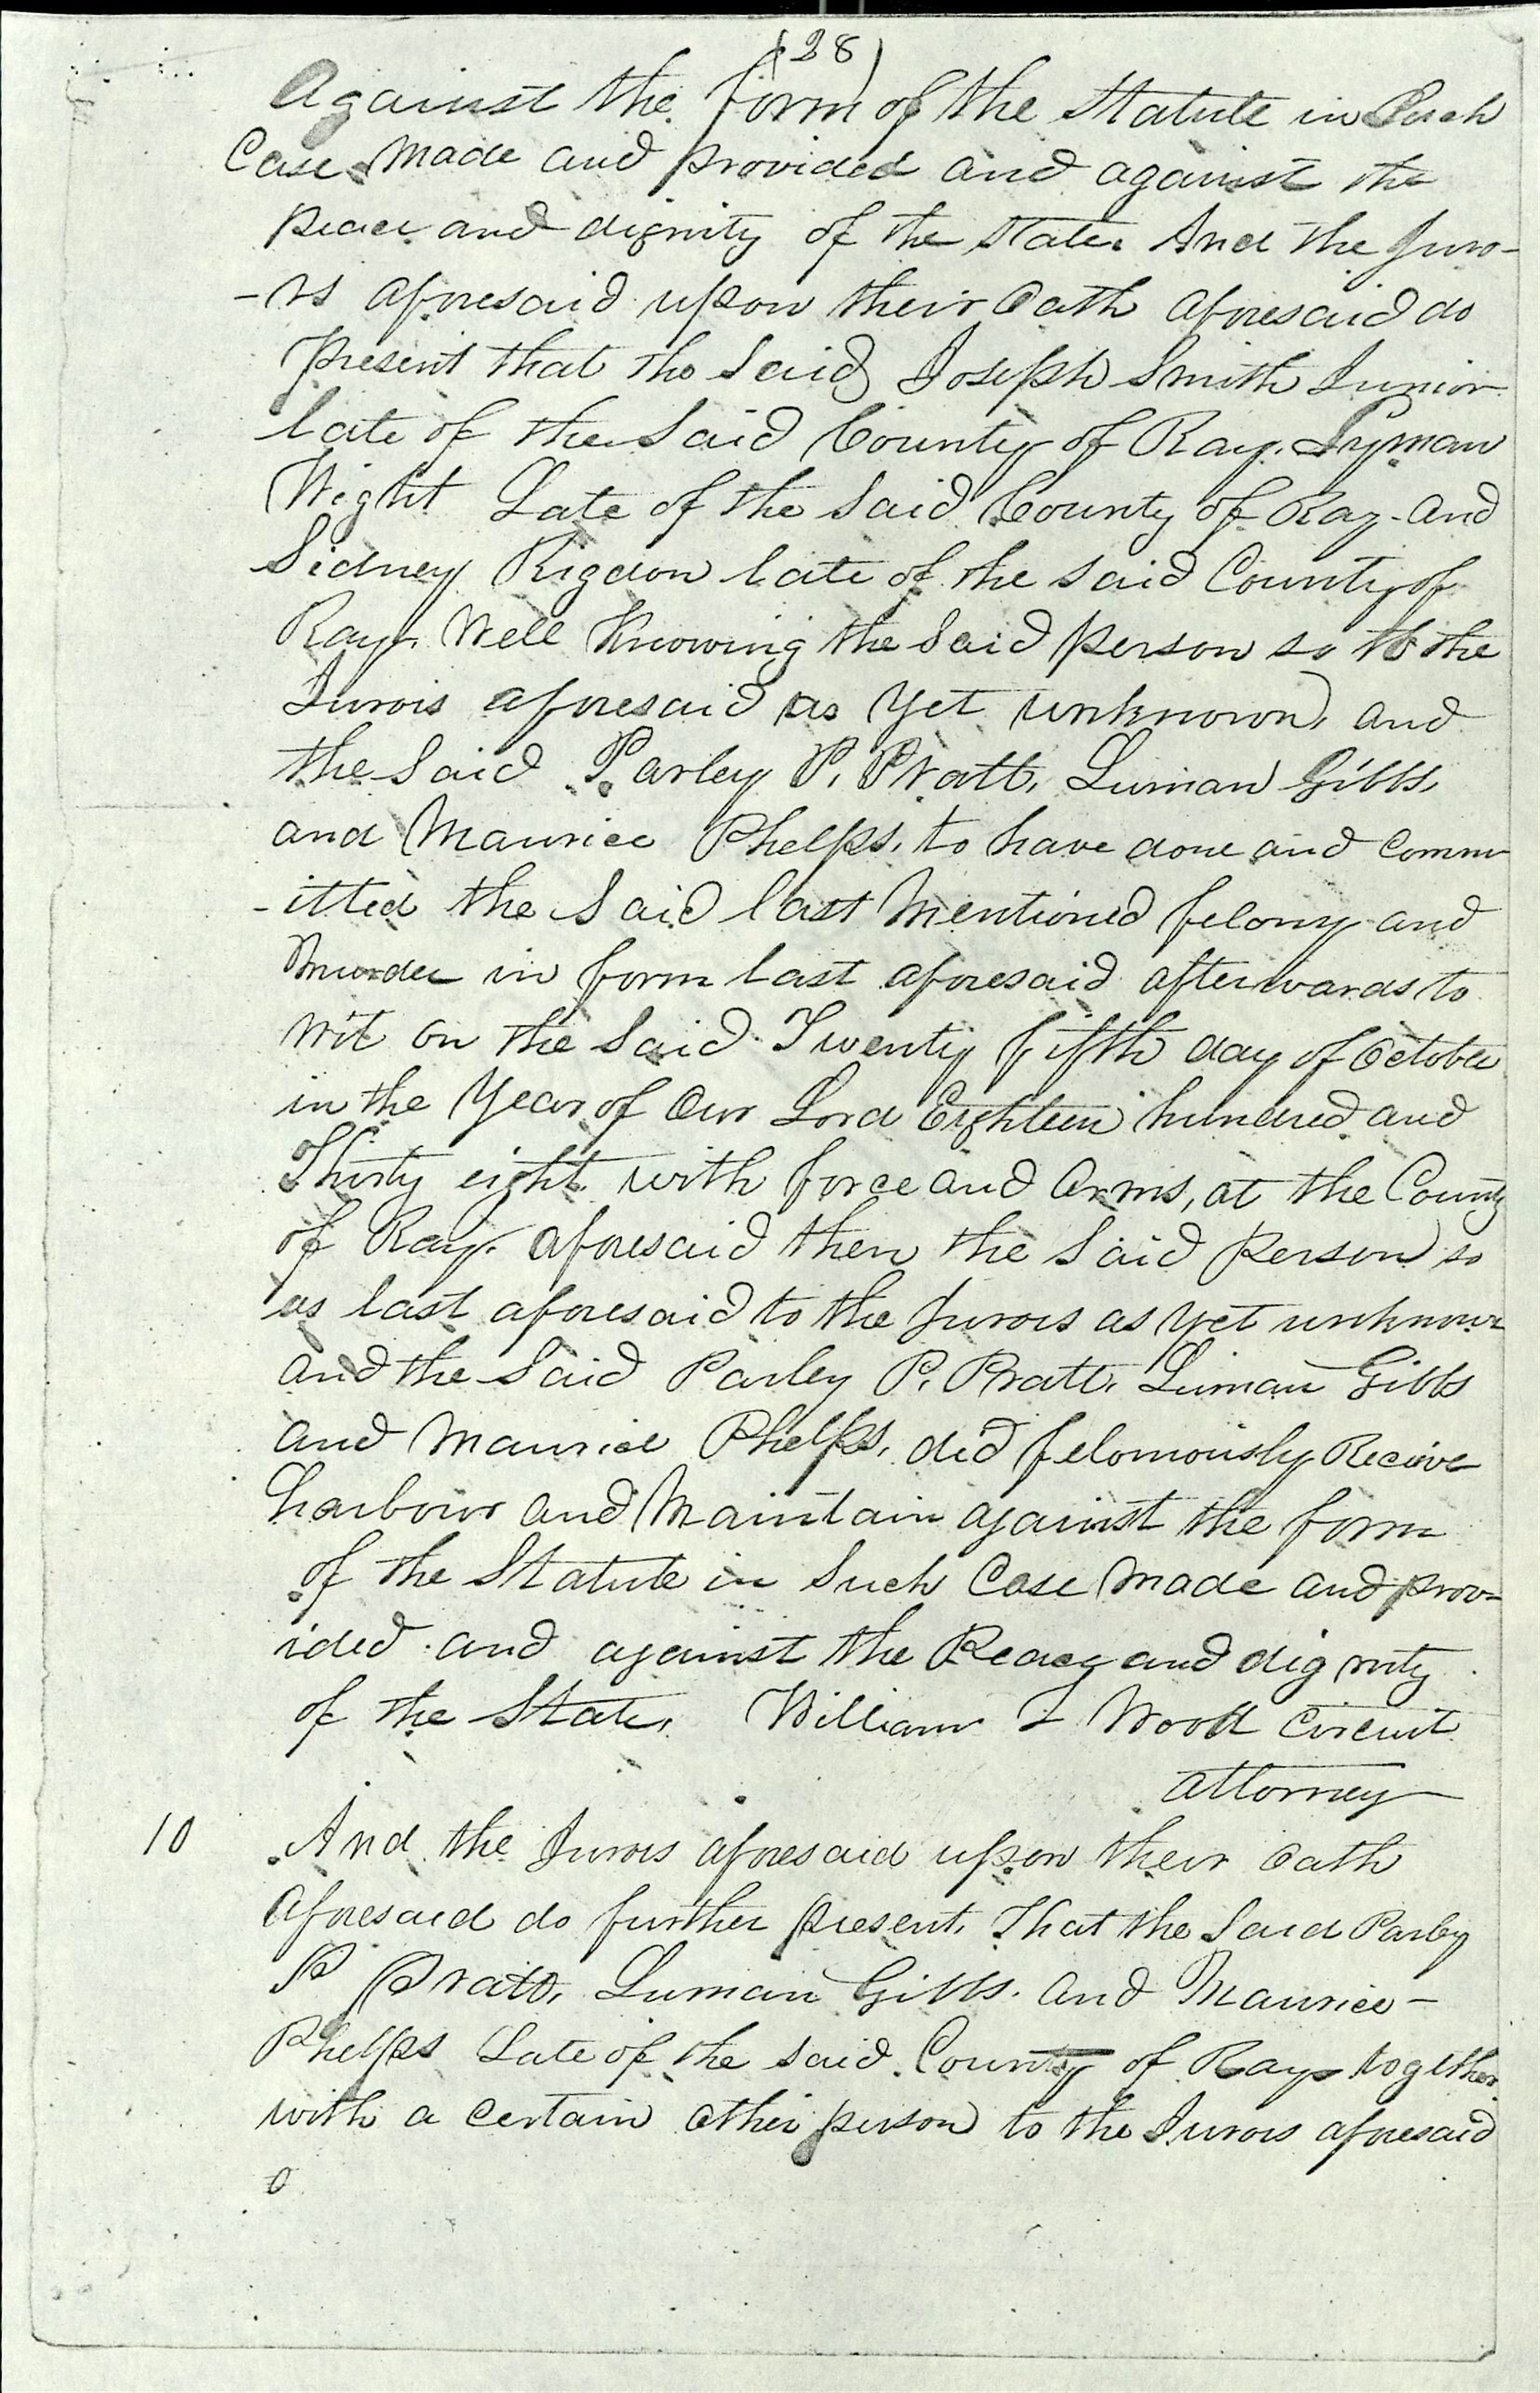 (28)
Against the form of the Statute in Such
Case Made and provided and against the
peace and dignity of the State. And the Juro-
-rs aforesaid upon their Oath aforesaid do
present that the Said Joseph Smith Junior
late of the Said County of Ray. Lyman
Wight Late of the Said County of Ray. and
Sidney Rigdon late of the Said County of
Ray. Well Knowing the Said person so to the
Jurors aforesaid as Yet unknown, and
the Said Parley P. Pratt, Luman Gibbs,
and Maurice Phelps, to have done and Comm
-itted the Said last Mentioned felony and
Murder in form last aforesaid afterwards to
wit on the Said Twenty fifth day of October
in the Year of Our Lord Eighteen hundred and
Thirty eight with force and Arms, at the County
of Ray. aforesaid then the Said Person so
as last aforesaid to the Jurors as yet unknown
and the Said Parley P. Pratt, Luman Gibbs
and Maurice Phelps, did feloniously Recieve
harbour and Maintain against the form
of the Statute in Such Case Made and prov-
ided and against the Peace and dignity
of the State. William T Wood Circuit
attorney
10 And the Jurors aforesaid upon their Oath
aforesaid do further present, That the Said Parley
P Pratt, Luman Gibbs. and Maurice-
Phelps Late of the Said County of Ray together
with a certain other person to the Jurors aforesaid
0